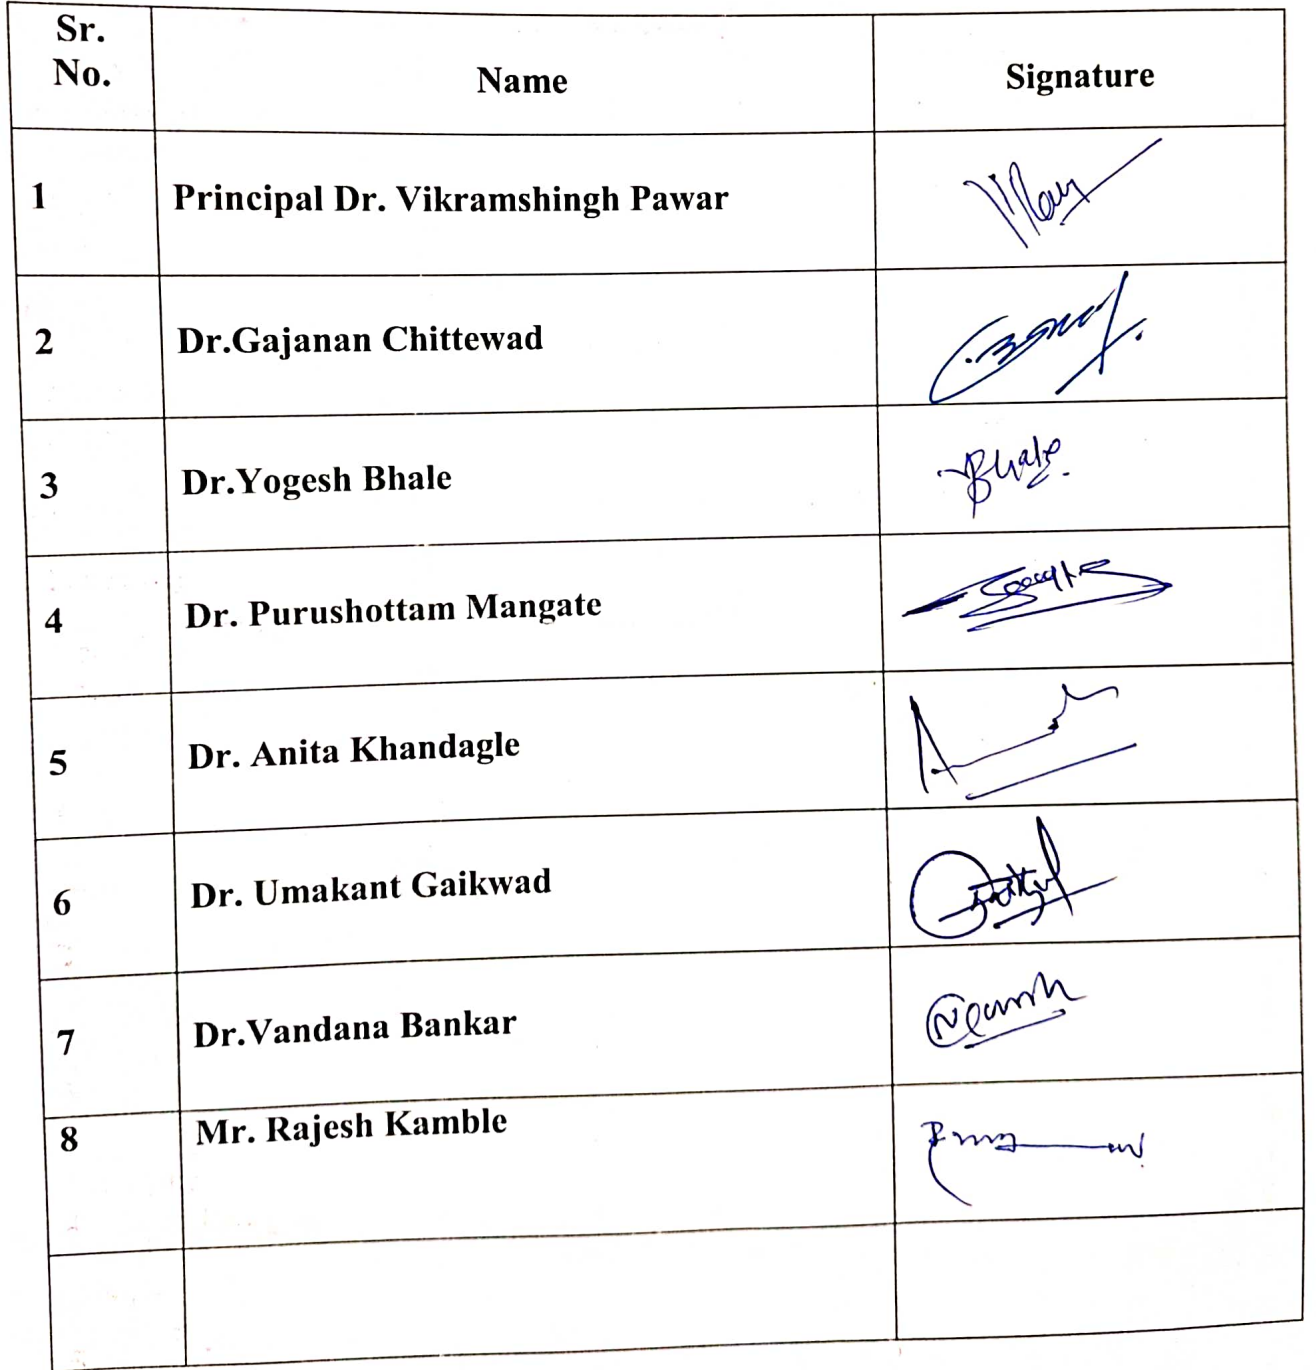 Sr.
No.
Name
Signature
1
Principal Dr. Vikramshingh Pawar
2
Dr.Gajanan Chittewad
3
Dr.Yogesh Bhale
Bhale
4
Dr. Purushottam Mangate
5
Dr. Anita Khandagle
6
Dr. Umakant Gaikwad
7
Dr.Vandana Bankar
8
Mr. Rajesh Kamble